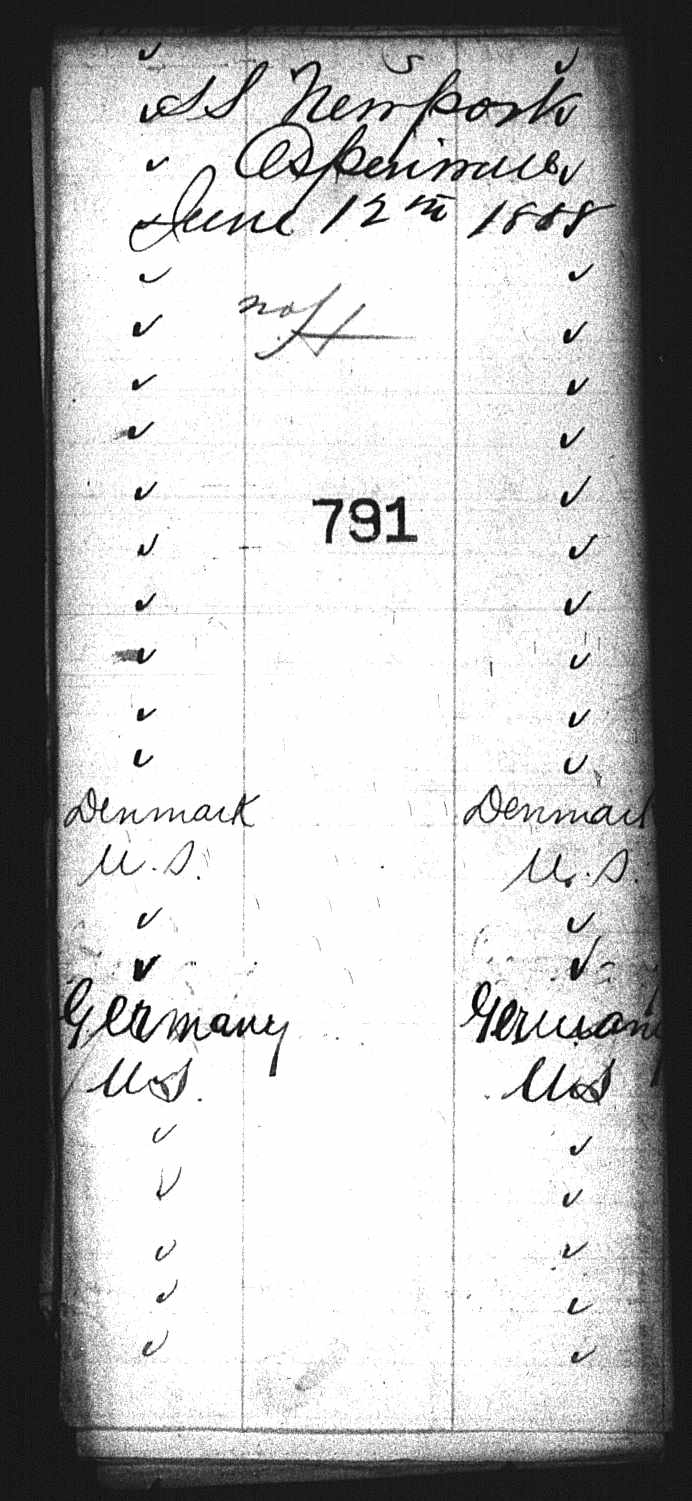 SS Newport
Aspinwall
June 12th 1888
not
791
Denmark Denmark
U.S. U.S.
Germany Germany
U.S. U.S